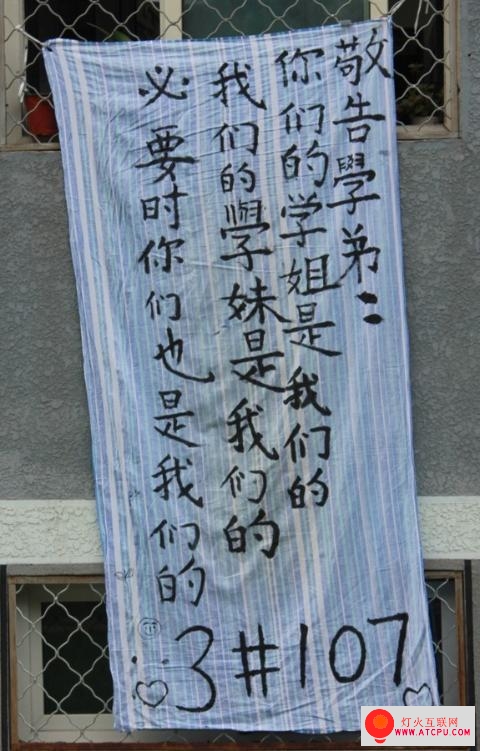 敬告學弟:
你们的学姐是我们的
我们的學妹是我们的
必要时你们也是我们的
3#107
灯火互联网
WWW.ATCPU.COM